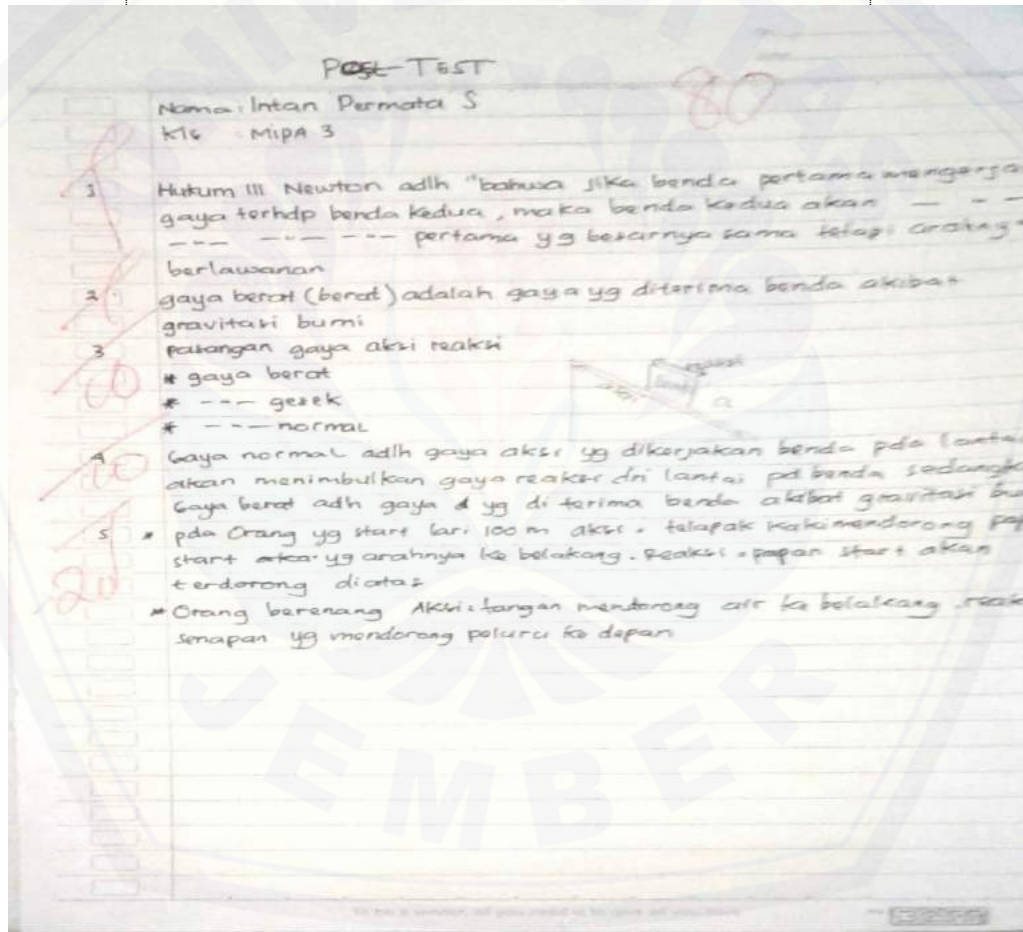 POST-TEST
80
Nama : Intan Permata S
Kls : MIPA 3
1 Hukum III Newton adlh "bahwa jika benda pertama mengerja
gaya terhdp benda kedua, maka benda kedua akan — - -
--- --- --- pertama yg besarnya sama tetapi arahny
berlawanan
2 gaya berat (berat) adalah gaya yg diterima benda akibat
gravitasi bumi
3 pasangan gaya aksi reaksi
* gaya berat
* --- gesek
* --- normal
4 Gaya normal adlh gaya aksi yg dikerjakan benda pda lantai
akan menimbulkan gaya reaksi dri lantai pd benda sedangk
Gaya berat adh gaya yg di terima benda akibat gravitasi bu
5 * pda Orang yg start lari 100 m aksi : telapak kaki mendorong pap
start yg arahnya ke belakang. Reaksi : papan start akan
terdorong diatas
20
* Orang berenang Aksi : tangan mendorong air ke belakang reak
senapan yg mendorong peluru ke depan
JEMBER